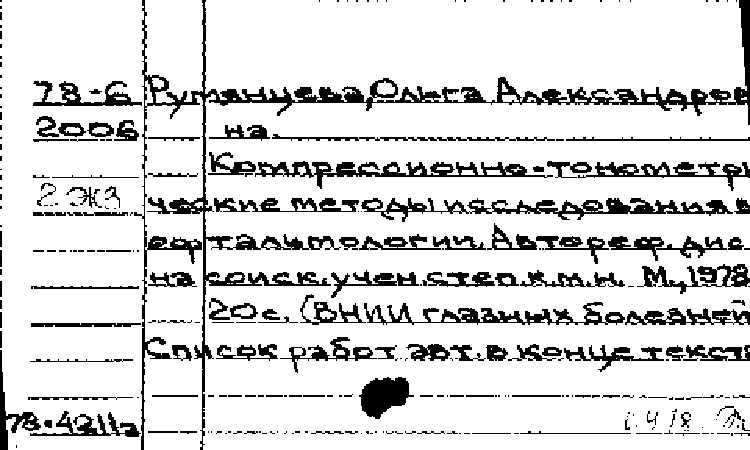 78-6 Румянцева, Ольга Александров
2006 на.
Компрессионно-тонометри
2 экз ческие методы исследования в
офтальмологии. Автореф. дис.
на соиск. учен. степ. к.м.н. М., 1978
20 с. (ВНИИ глазных болезней
Список работ авт. в конце текста
78-4211а